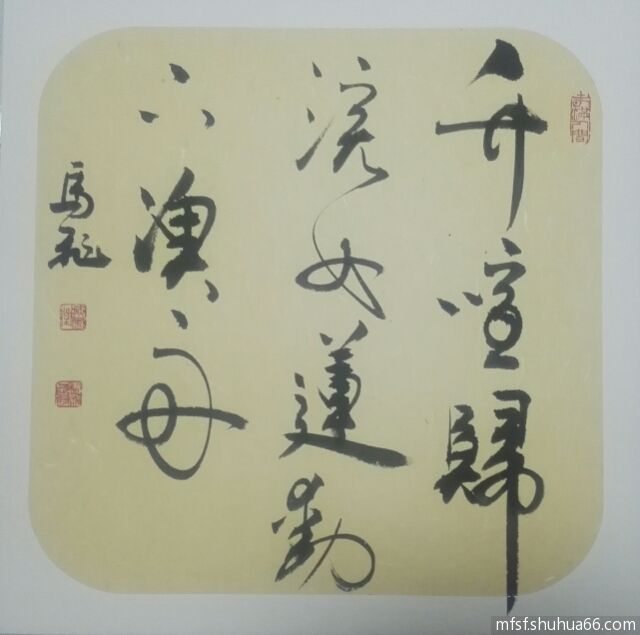 竹喧歸
浣女蓮動
下漁舟
馬飛
mfsf.shuhua66.com